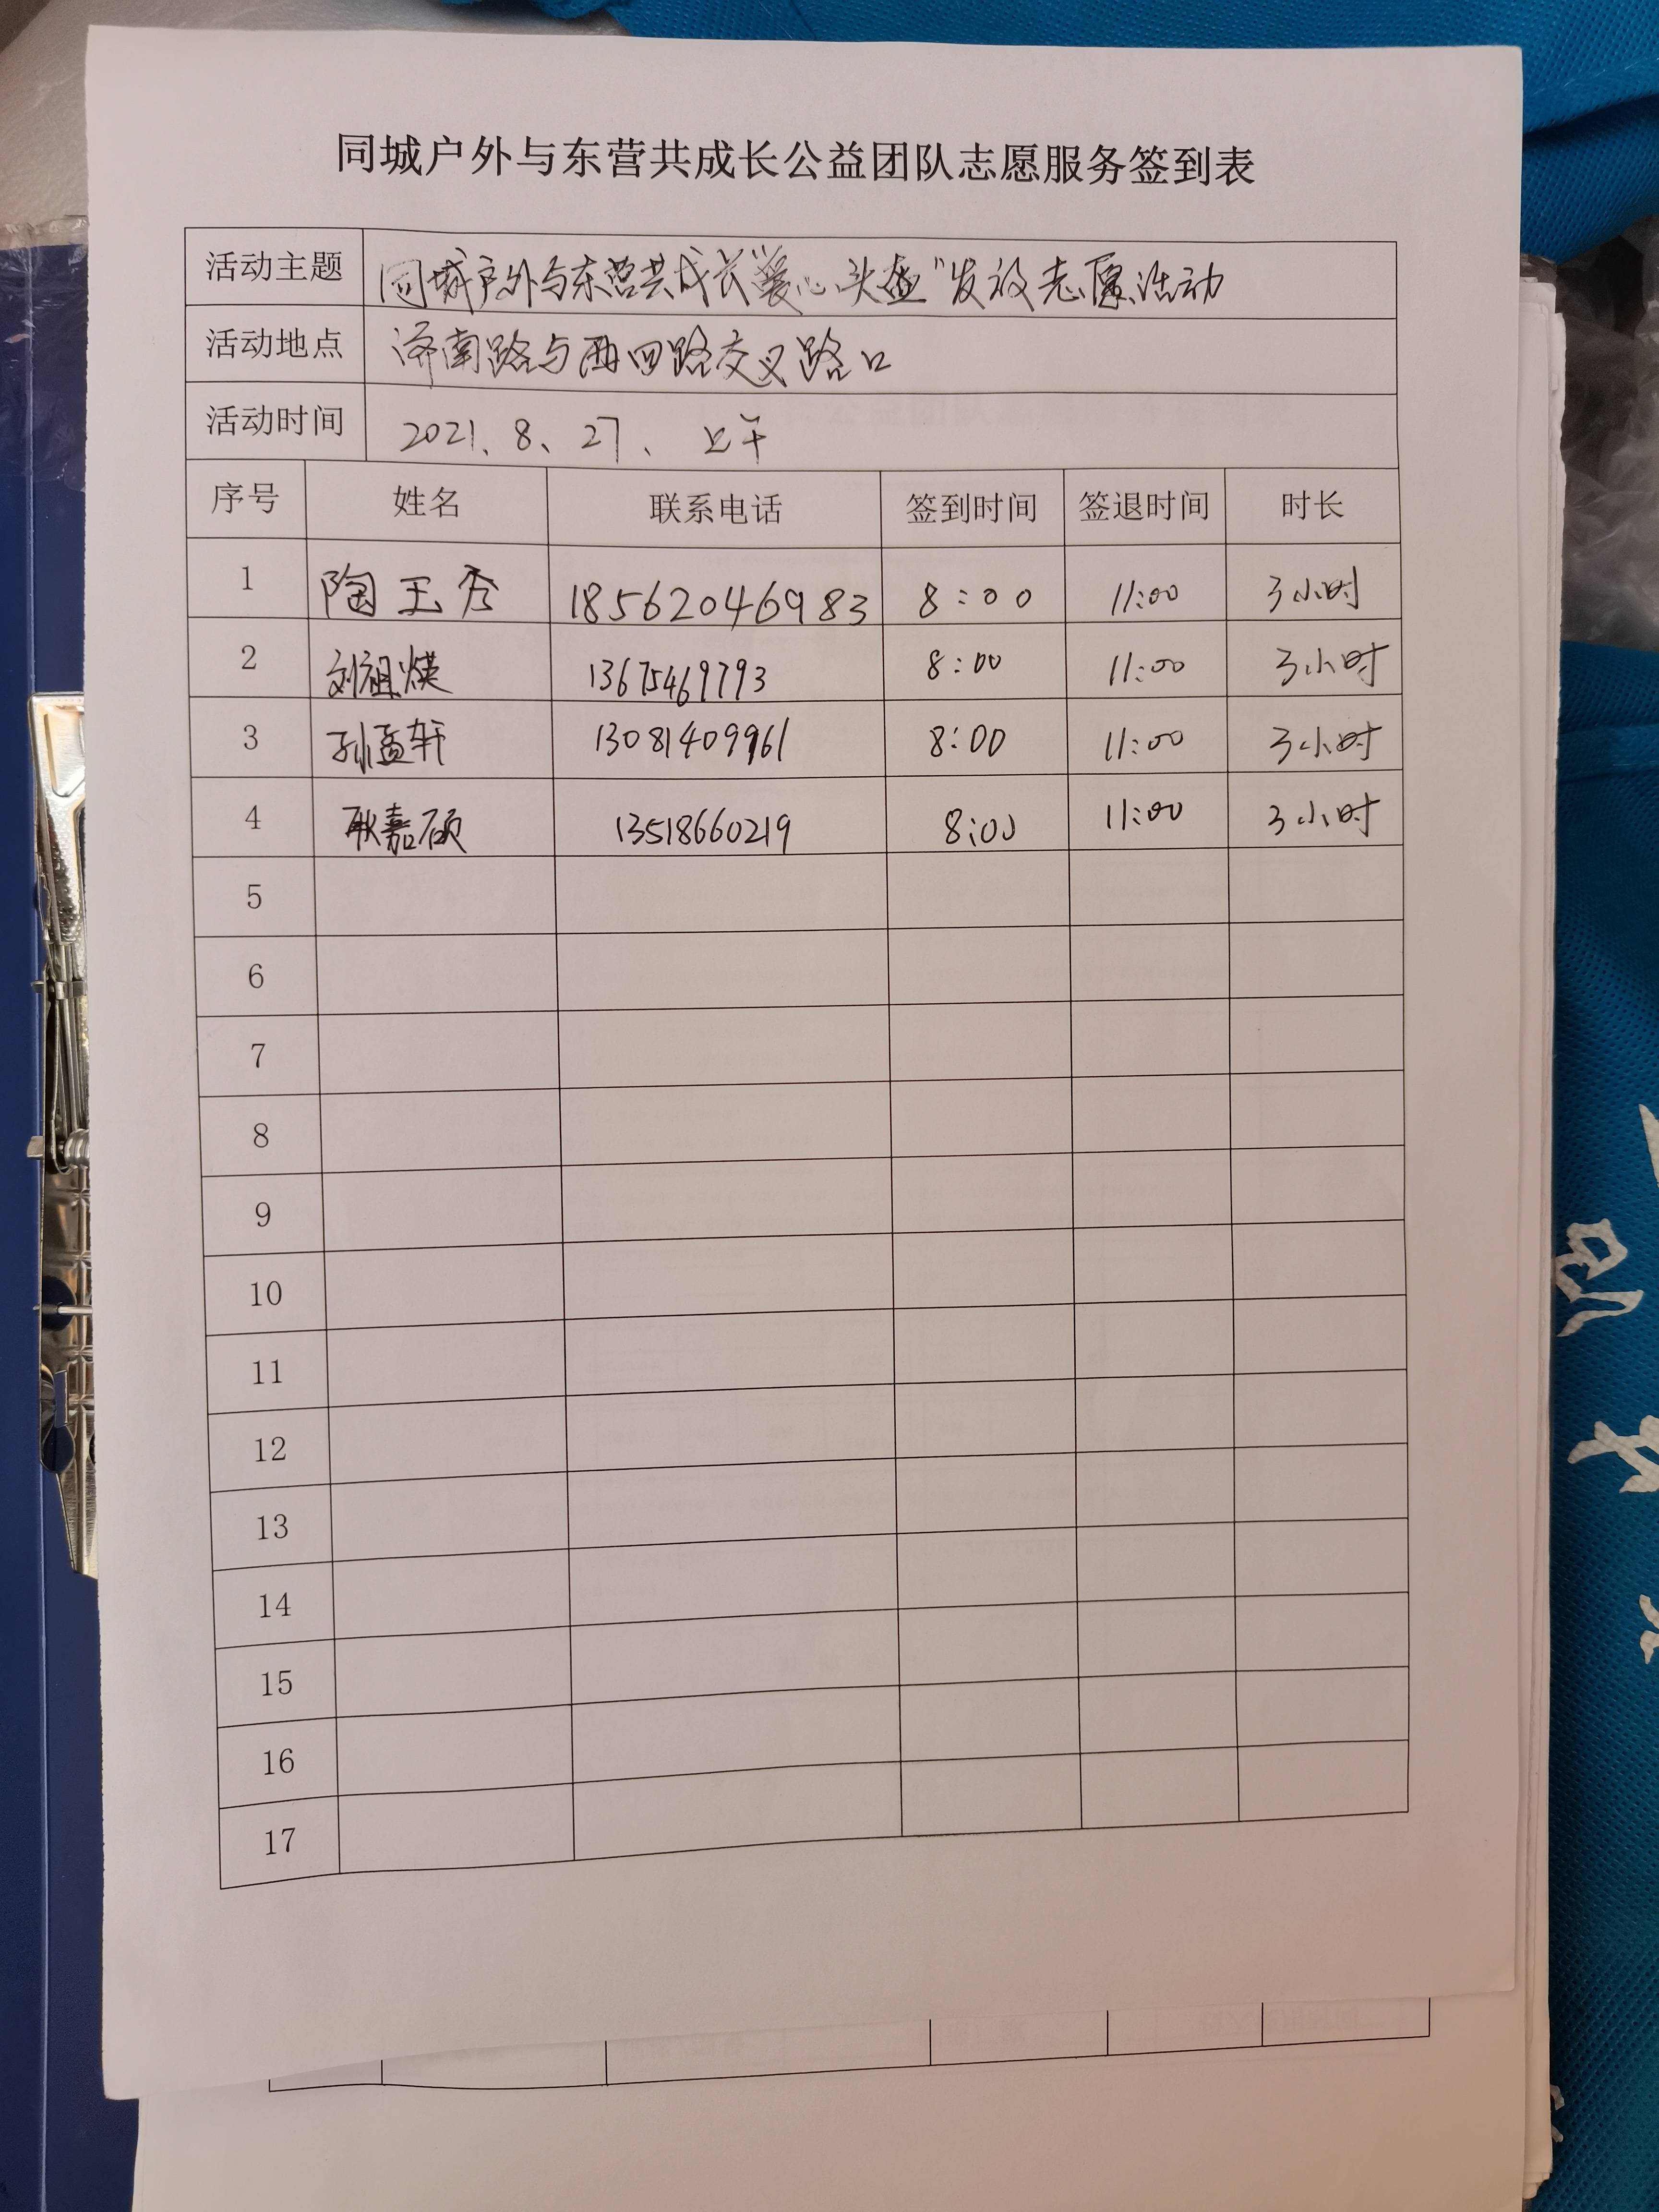 同城户外与东营共成长公益团队志愿服务签到表
活动主题 同城户外与东营共成长"爱心头盔"发放志愿活动
活动地点 济南路与西四路交叉路口
活动时间 2021、8、27、上午
序号 姓名 联系电话 签到时间 签退时间 时长
1 陶玉秀 18562046983 8:00 11:00 3小时
2 刘祖煐 13675469793 8:00 11:00 3小时
3 孙孟轩 13081409961 8:00 11:00 3小时
4 耿嘉硕 13518660219 8:00 11:00 3小时
5
6
7
8
9
10
11
12
13
14
15
16
17